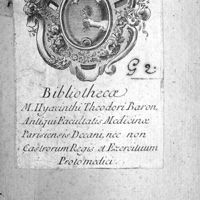 G 2.
Bibliotheca
M. Hyacinthi Theodori Baron,
Antiqui Facultatis Medicinæ
Parisiensis Decani, nec non
Castrorum Regis et Exercituum
Protomedici.